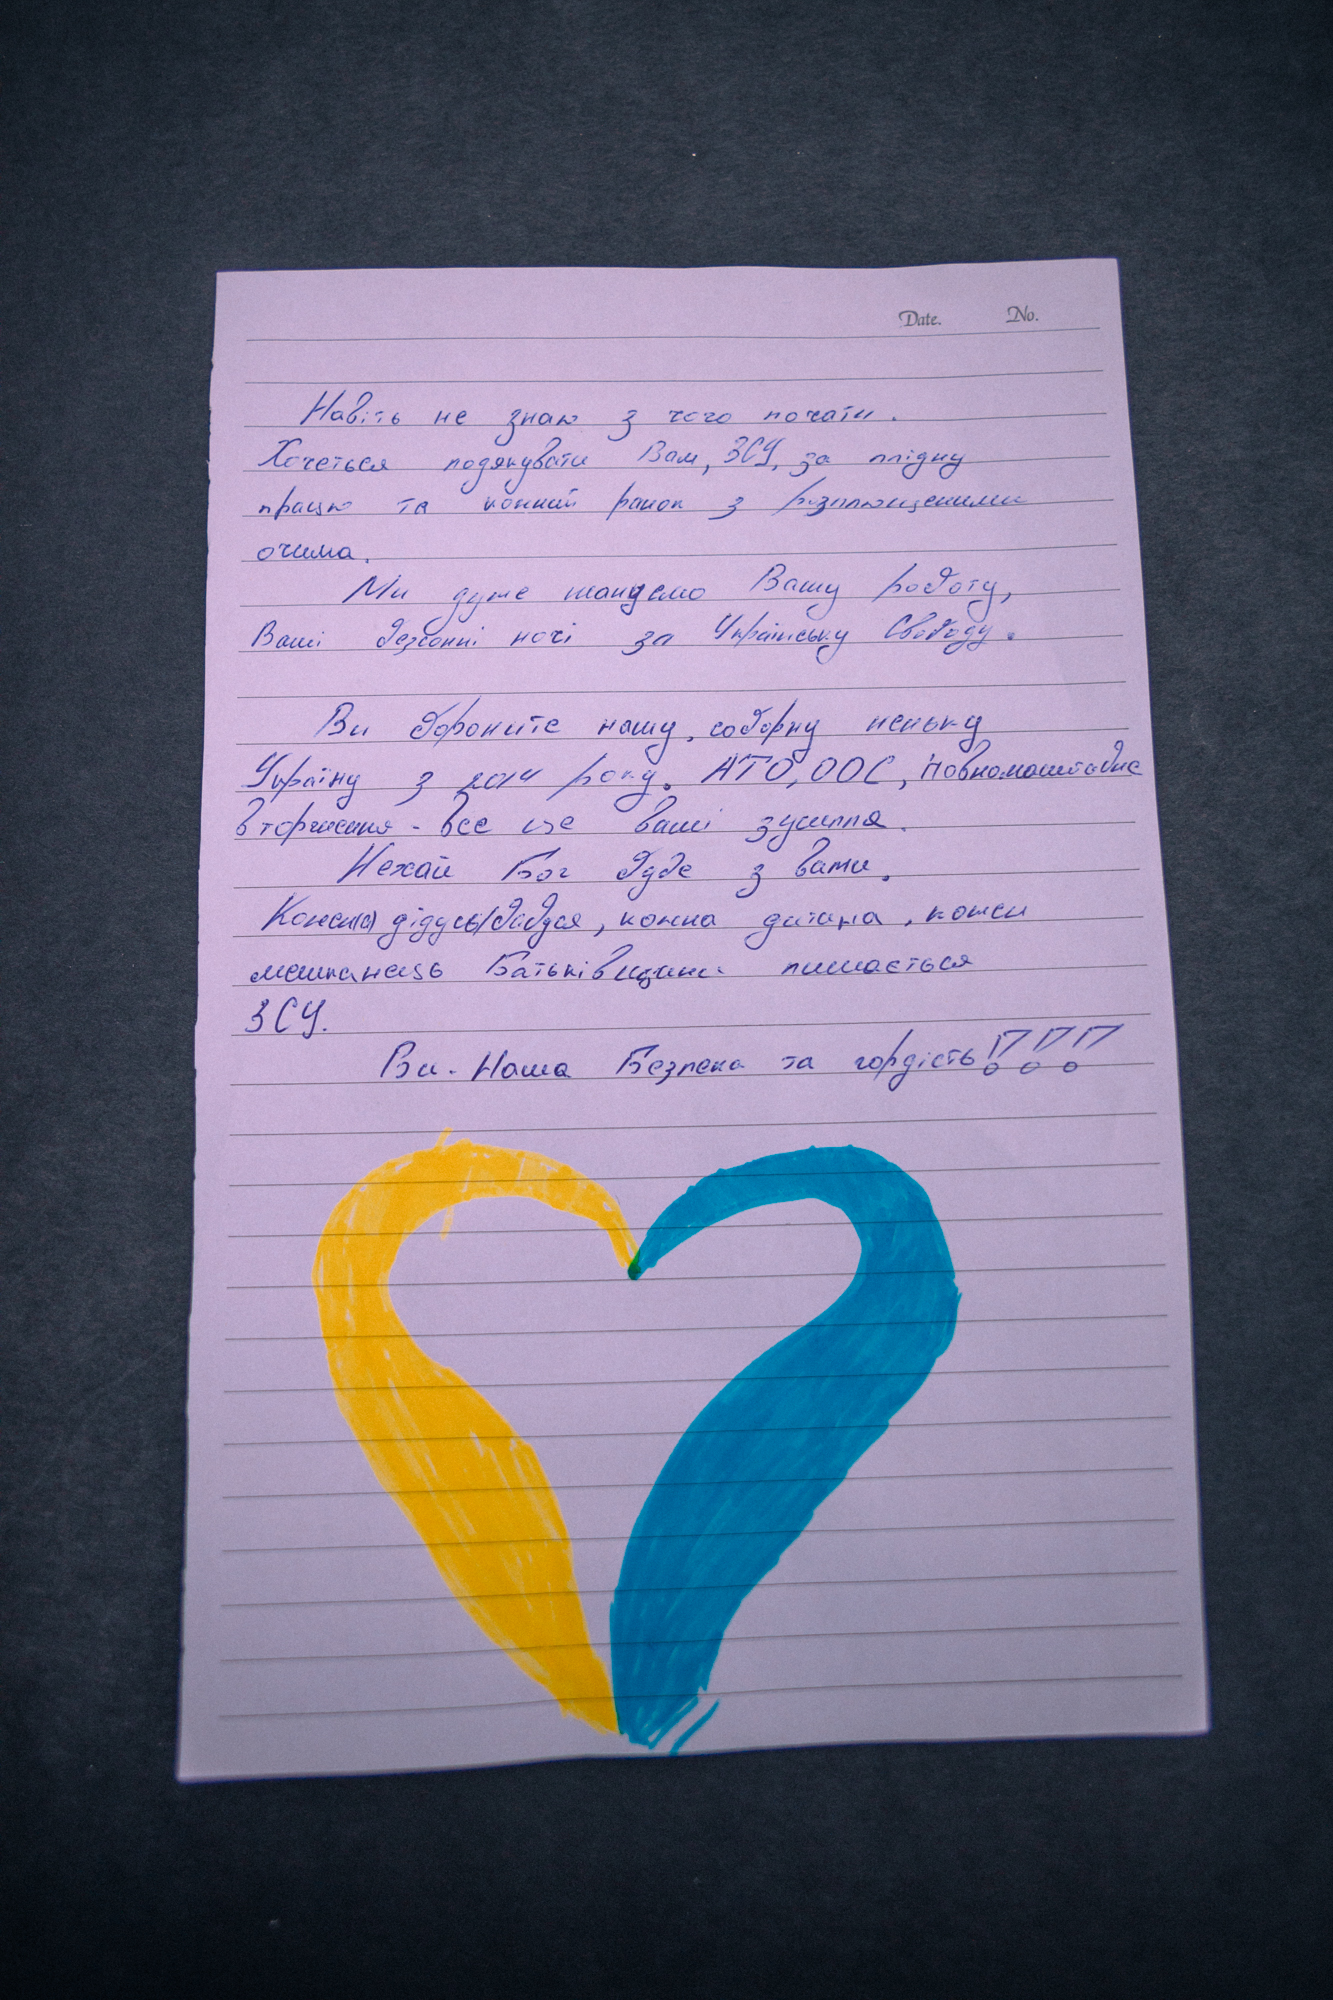 Date. No.
Навіть не знаю з чого почати.
Хочеться подякувати Вам, ЗСУ, за плідну
працю та кожний ранок з розплющеними
очима.
Ми дуже шануємо Вашу роботу,
Ваші безсонні ночі за Українську Свободу.
Ви бороните нашу, соборну неньку
Україну з 2014 року. АТО, ООС, повномаштабне
вторгнення - все це ваші зусилля.
Нехай Бог буде з вами.
Кожен(а) дідусь/бабуся, кожна дитина, кожен
мешканець Батьківщини пишається
ЗСУ.
Ви - Наша Безпека та гордість!!!